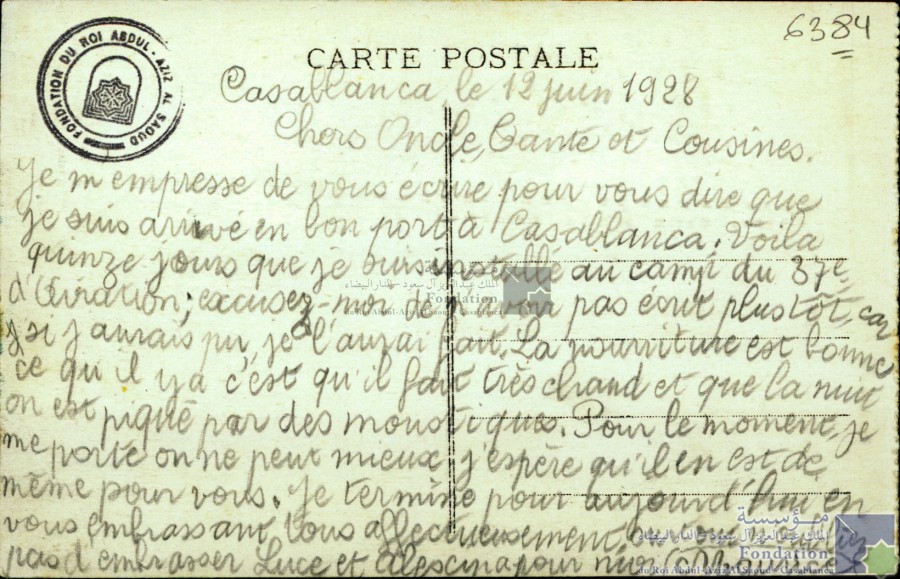 6384
CARTE POSTALE
FONDATION DU ROI ABDUL-AZIZ AL SAOUD
Casablanca, le 12 juin 1928
Chers Oncle, Tante et Cousines.
Je m'empresse de vous écrire pour vous dire que
je suis arrivé en bon port à Casablanca. Voila
quinze jours que je suis installé au camp du 37e
d'Aviation; excusez-moi de pas écrit plus tôt, car
si j'aurais pu, je l'aurai fait. La nourriture est bonne
ce qu'il y a c'est qu'il fait très chaud et que la nuit
on est piqué par des moustiques. Pour le moment, je
me porte on ne peut mieux j'espère qu'il en est de
même pour vous. Je termine pour aujourd'hui en
vous embrassant tous affectueusement,
pas d'embrasser Luce et pour moi
مؤسسة
الملك عبد العزيز آل سعود - الدار البيضاء
Fondation
du Roi Abdul-Aziz Al Saoud - Casablanca
الملك عبد العزيز آل سعود - الدار البيضاء
Fondation
du Roi Abdul-Aziz Al Saoud - Casablanca